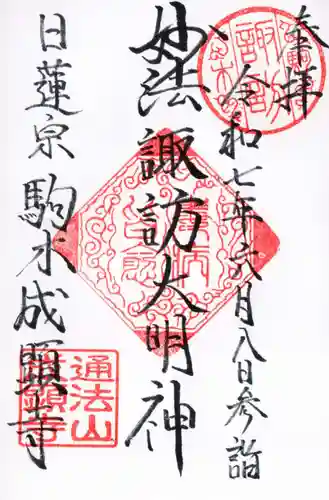 奉拝
令和七年六月八日参詣
妙法 諏訪大明神
日蓮宗 駒木成顕寺
通法山
成顕寺